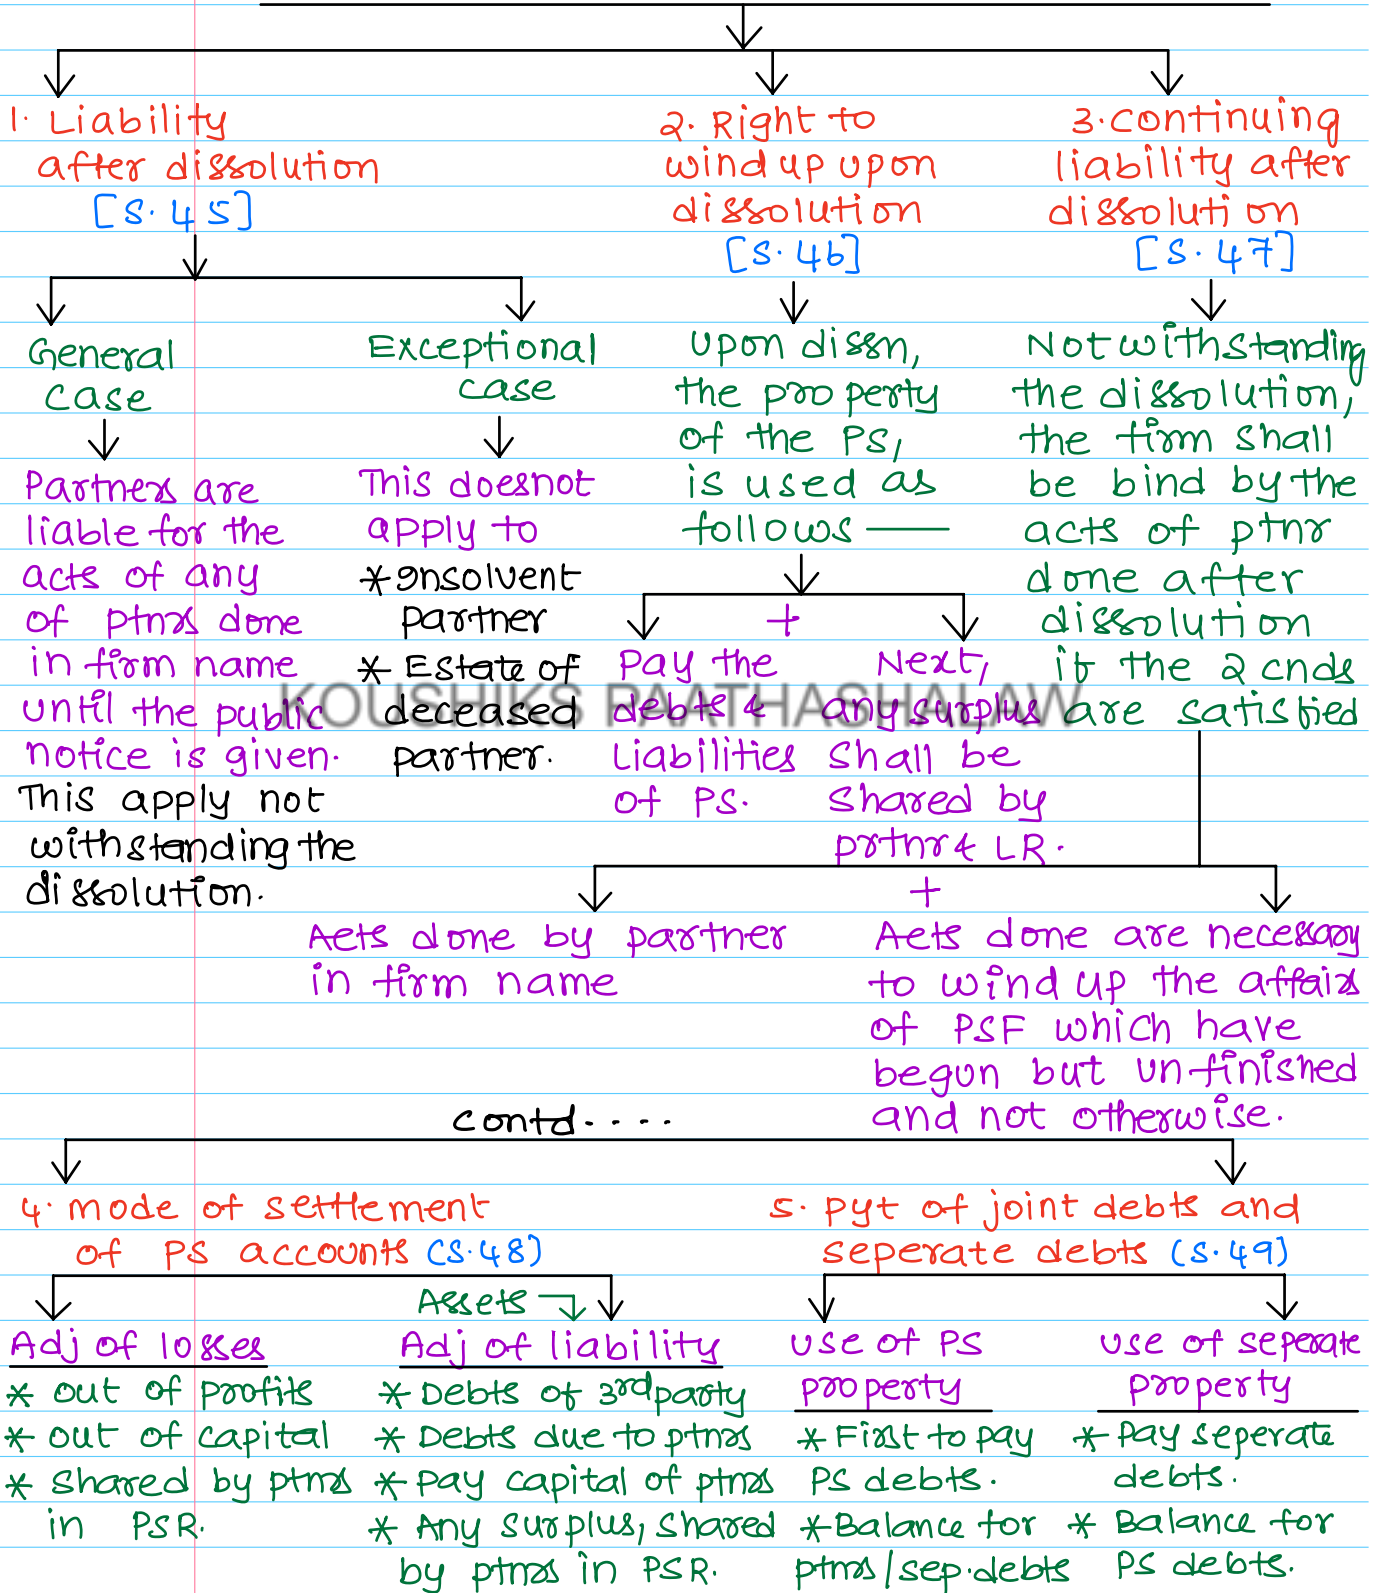 1. Liability
after dissolution
[S.45]
2. Right to
wind up upon
dissolution
[S.46]
3.continuing
liability after
dissolution
[S.47]
General
case
Partners are
liable for the
acts of any
of ptnrs done
in firm name
until the public
notice is given.
This apply not
withstanding the
dissolution.
Exceptional
case
This doesnot
apply to
*Insolvent
partner
* Estate of
deceased
partner.
Upon dissn,
the property
of the PS,
is used as
follows —
+
Pay the
debts &
Liabilities
of PS.
Next,
any surplus
shall be
shared by
prtnr & LR.
Notwithstanding
the dissolution,
the firm shall
be bind by the
acts of ptnr
done after
dissolution
if the 2 cnds
are satisfied
KOUSHIKS PAATHASHALAW
+
Acts done by partner
in firm name
Acts done are necessary
to wind up the affairs
of PSF which have
begun but un-finished
and not otherwise.
contd.....
4. mode of settlement
of PS accounts (S.48)
Adj of losses
* out of profits
* out of capital
* shared by ptnrs
in PSR.
Assets
Adj of liability
* Debts of 3rd party
* Debts due to ptnrs
* Pay capital of ptnrs
* Any surplus, shared
by ptnrs in PSR.
5. Pyt of joint debts and
seperate debts (S.49)
use of PS
property
* First to pay
PS debts.
*Balance for
ptnrs/sep.debts
use of seperate
property
* Pay seperate
debts.
* Balance for
PS debts.